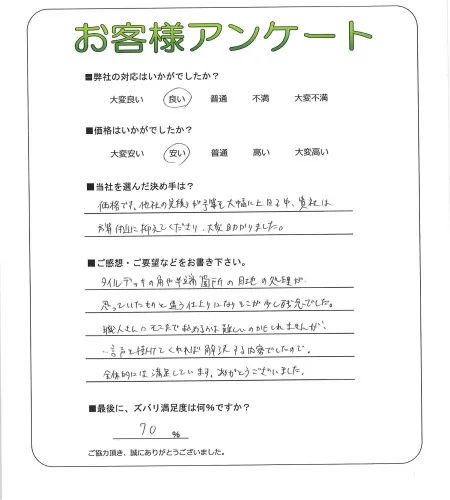 お客様アンケート
■弊社の対応はいかがでしたか?
大変良い 良い 普通 不満 大変不満
■価格はいかがでしたか?
大変安い 安い 普通 高い 大変高い
■当社を選んだ決め手は?
価格です。他社の見積りが予算を大幅に上回る中、貴社は
予算付近に抑えてくださり、大変助かりました。
■ご感想・ご要望などをお書き下さい。
タイルデッキの角や半端箇所の目地の処理が
思っていたものと違う仕上りになりそこが少し残念でした。
職人さんにそこまで求めるのは難しいのかもしれませんが、
一言声を掛けてくれれば解決する内容でしたので。
全体的には満足しています。ありがとうございました。
■最後に、ズバリ満足度は何%ですか?
70 %
ご協力頂き、誠にありがとうございました。